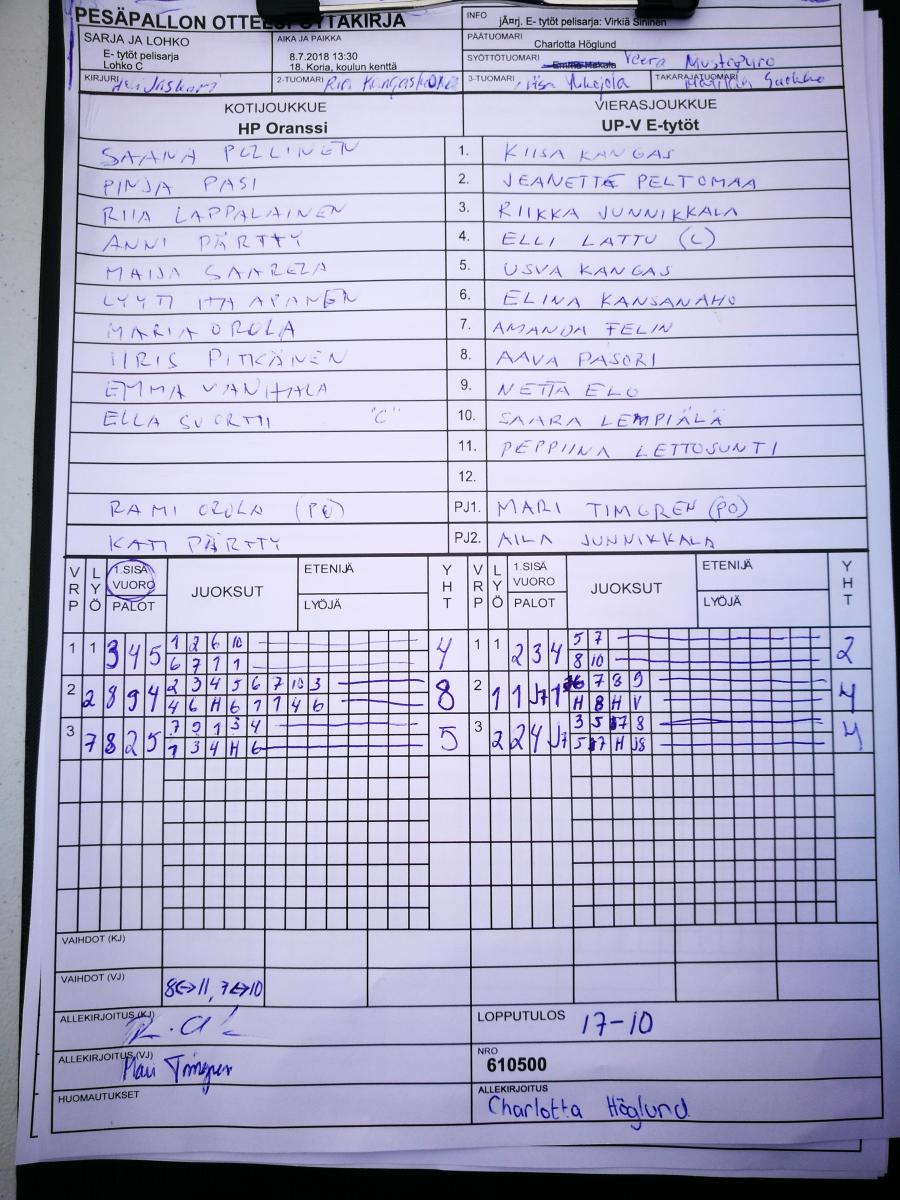 PESÄPALLON OTTELUPÖYTÄKIRJA
SARJA JA LOHKO
E- tytöt pelisarja
Lohko C
AIKA JA PAIKKA
8.7.2018 13:30
18. Koria, koulun kenttä
INFO
jÃ¤rj. E- tytöt pelisarja: Virkiä Sininen
PÄÄTUOMARI
Charlotta Höglund
SYÖTTÖTUOMARI
Veera Mustapuro
KIRJURI
2-TUOMARI
3-TUOMARI
TAKARAJATUOMARI
KOTIJOUKKUE
HP Oranssi
VIERASJOUKKUE
UP-V E-tytöt
SAANA PELLINEN 1. KIISA KANGAS
PINJA PASI 2. JEANETTE PELTOMAA
RIIA LAPPALAINEN 3. RIIKKA JUNNIKKALA
ANNI PÄRTTY 4. ELLI LATTU (C)
MAIJA SAARELA 5. USVA KANGAS
LYYTI 6. ELINA KANSANAHO
MARIA OROLA 7. AMANDA FELIN
IIRIS PITKÄNEN 8. AAVA PASORI
EMMA VANHALA 9. NETTA ELO
ELLA SUORTTI "C" 10. SAARA LEMPIÄLÄ
11. PEPPIINA LETTOSUNTI
12.
RAMI OROLA (PO) PJ1. MARI TIMGREN (PO)
KATI PÄRTTY PJ2. AILA JUNNIKKALA
VRP LYÖ 1.SISÄ VUORO PALOT JUOKSUT ETENIJÄ LYÖJÄ YHT VRP LYÖ 1.SISÄ VUORO PALOT JUOKSUT ETENIJÄ LYÖJÄ YHT
1 1 3 4 5 1 2 6 10 4 1 1 2 3 4 5 7 2
6 7 1 1 8 10
2 2 8 9 4 2 3 4 5 6 7 10 3 8 2 1 1 J7 1 6 7 8 9 4
4 6 H 6 1 1 4 6 H 8 H V
3 7 8 2 5 7 9 1 3 4 5 3 2 2 4 J7 3 5 7 8 4
1 3 4 H 6 5 7 H J8
VAIHDOT (KJ)
VAIHDOT (VJ)
8↔11, 7↔10
ALLEKIRJOITUS (KJ)
LOPPUTULOS 17-10
ALLEKIRJOITUS (VJ)
Mari Timgren
NRO
610500
HUOMAUTUKSET
ALLEKIRJOITUS
Charlotta Höglund